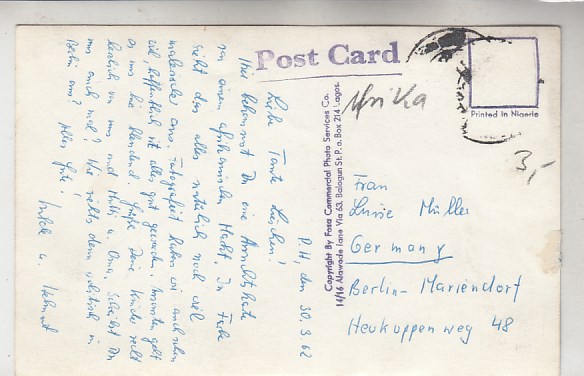 Post Card
Afrika
Printed in Nigeria
3,-
Copyright By Fosa Commercial Photo Services Co.
14/16 Alawade lane Via 63, Balogun St. P.o. Box 214 Lagos.
P. H., den 30.3.62
Liebe Tante Luischen!
Hier bekommst Du eine Ansichtskarte
von einem afrikanischen Markt. In Farbe
sieht das alles natürlich noch viel
malerischer aus. Fotografiert haben wir auch schon
viel, hoffentlich ist alles gut geworden. Ansonsten geht
es uns hier blendend. Grüße Deine Kinder recht
herzlich von uns und Mutti u. Oma. Schreibst Du
uns auch mal? Wie sieht's denn politisch in
Berlin aus? Alles Gute!
u. Helmut
Frau
Luise Müller
Germany
Berlin-Mariendorf
Heukuppenweg 48